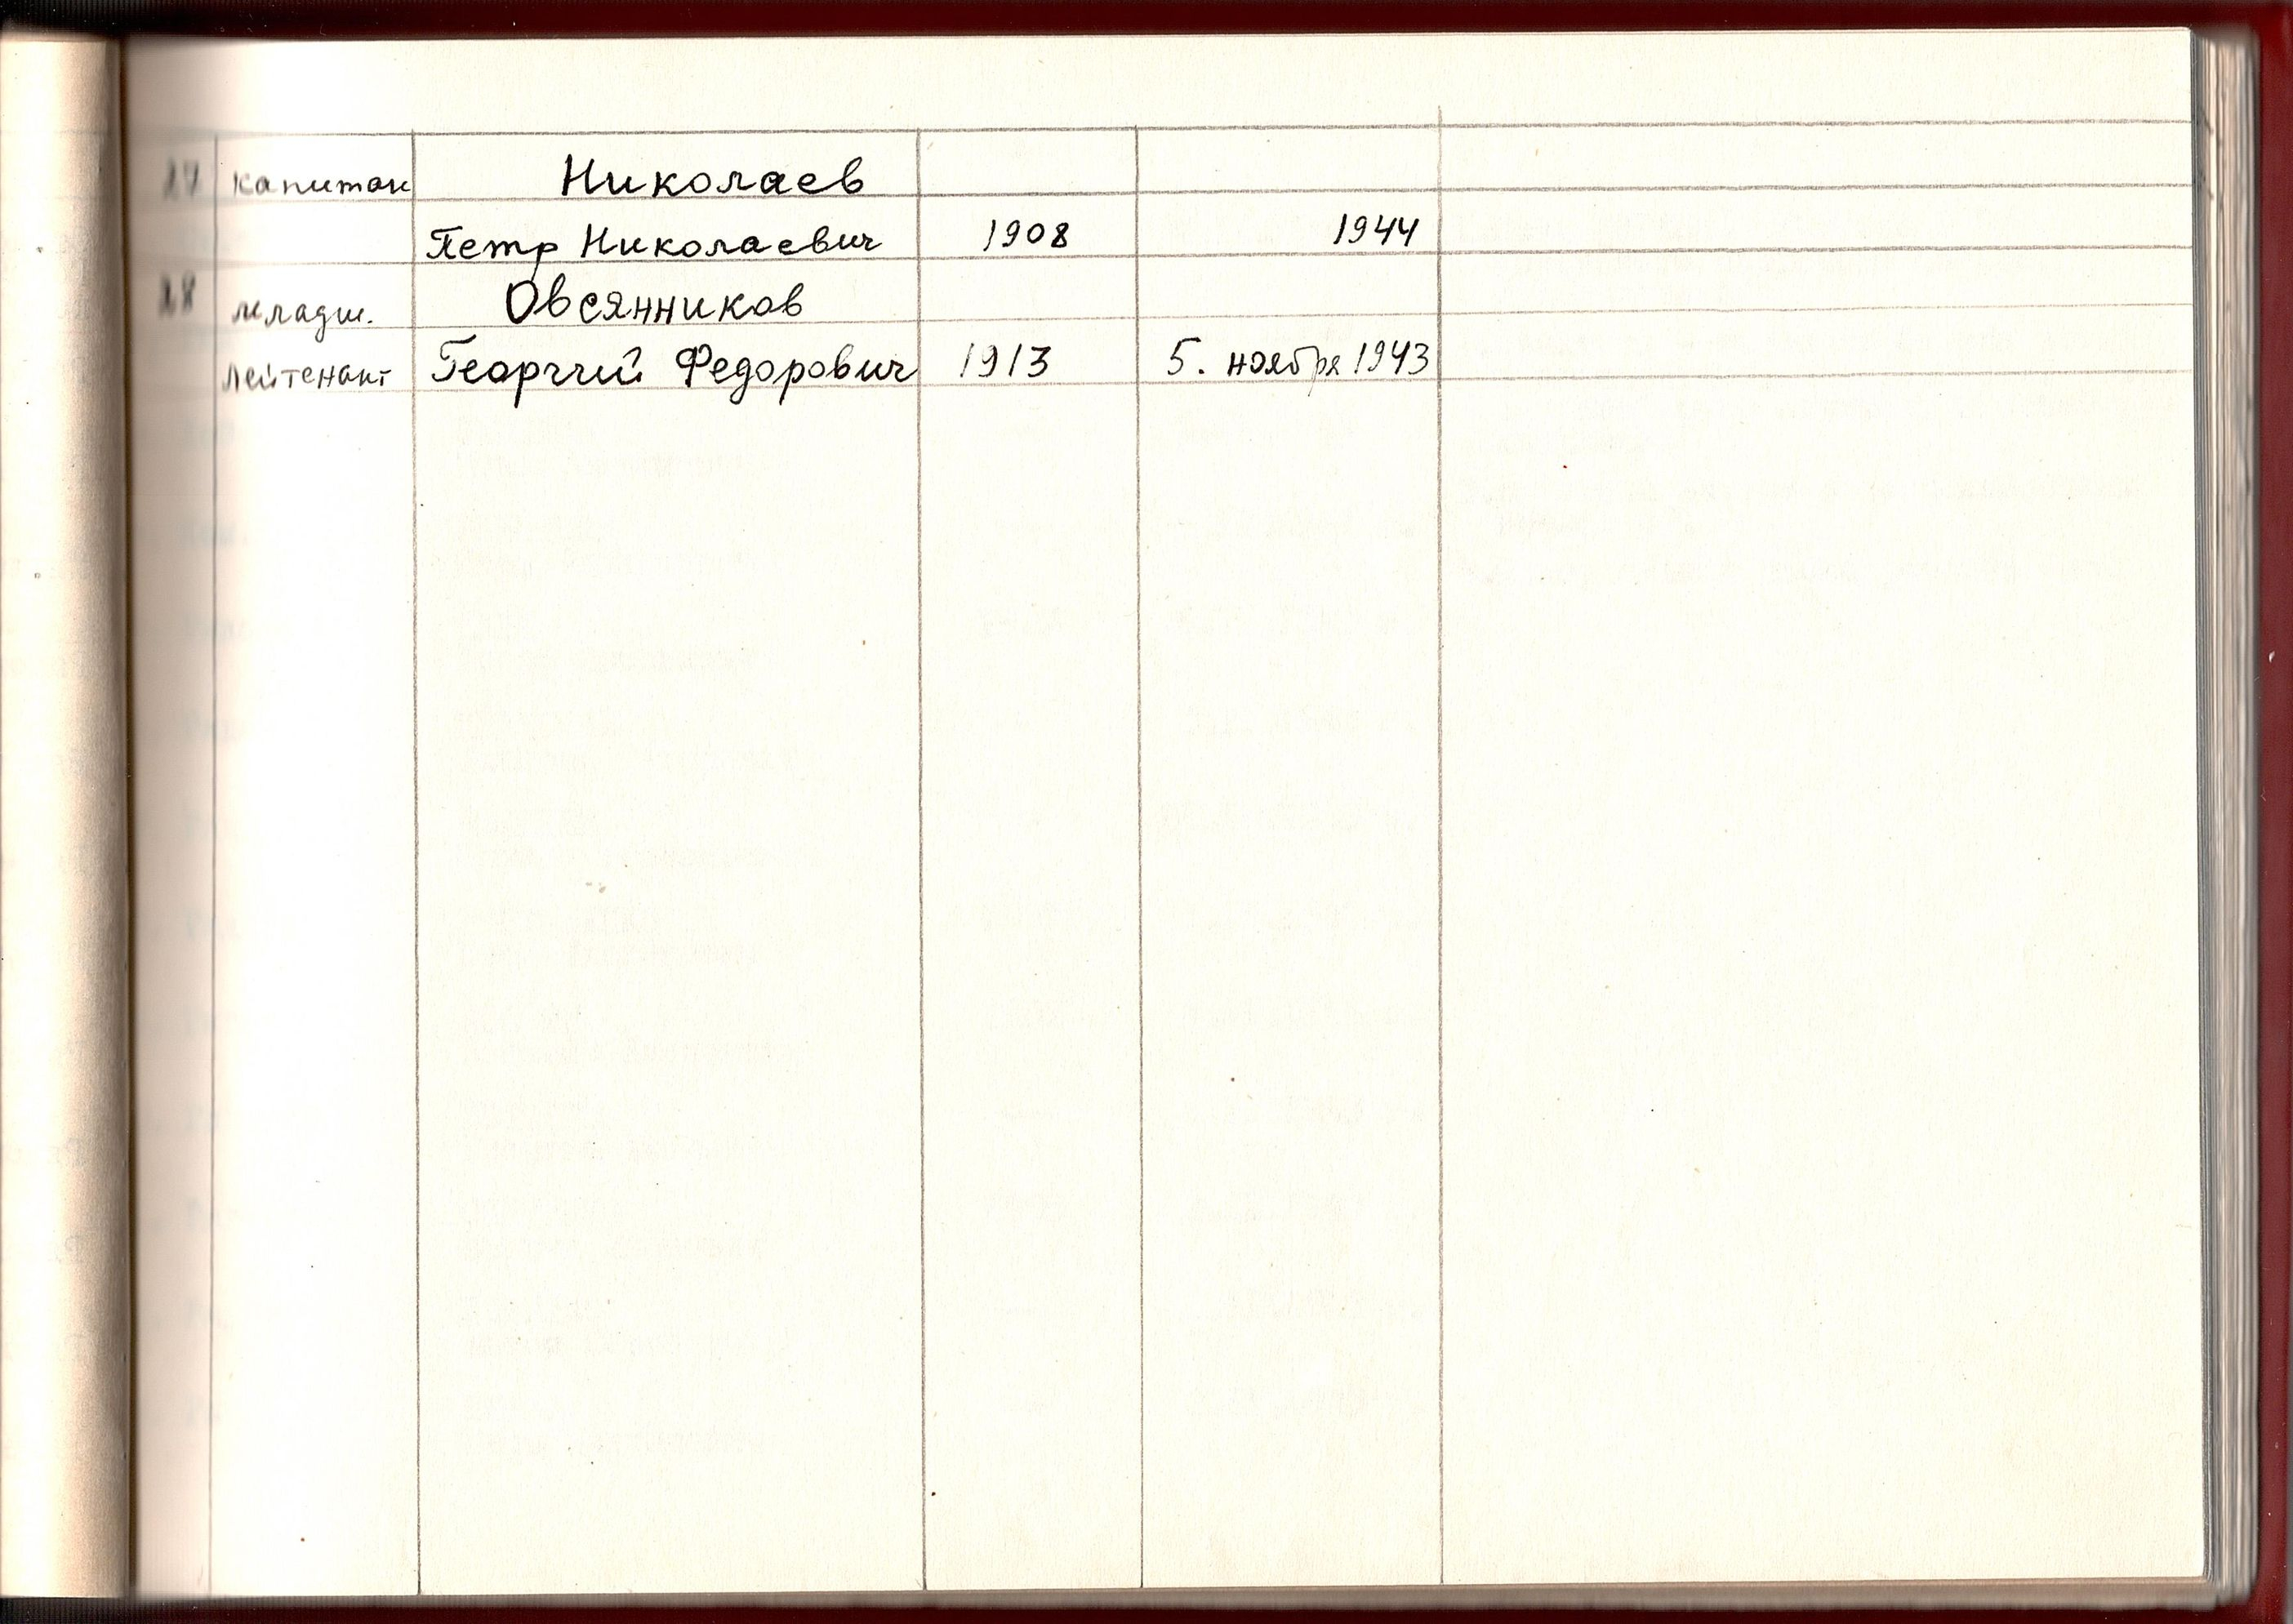 27 капитан Николаев
Петр Николаевич 1908 1944
28 младш. Овсянников
лейтенант Георгий Федорович 1913 5. ноября 1943